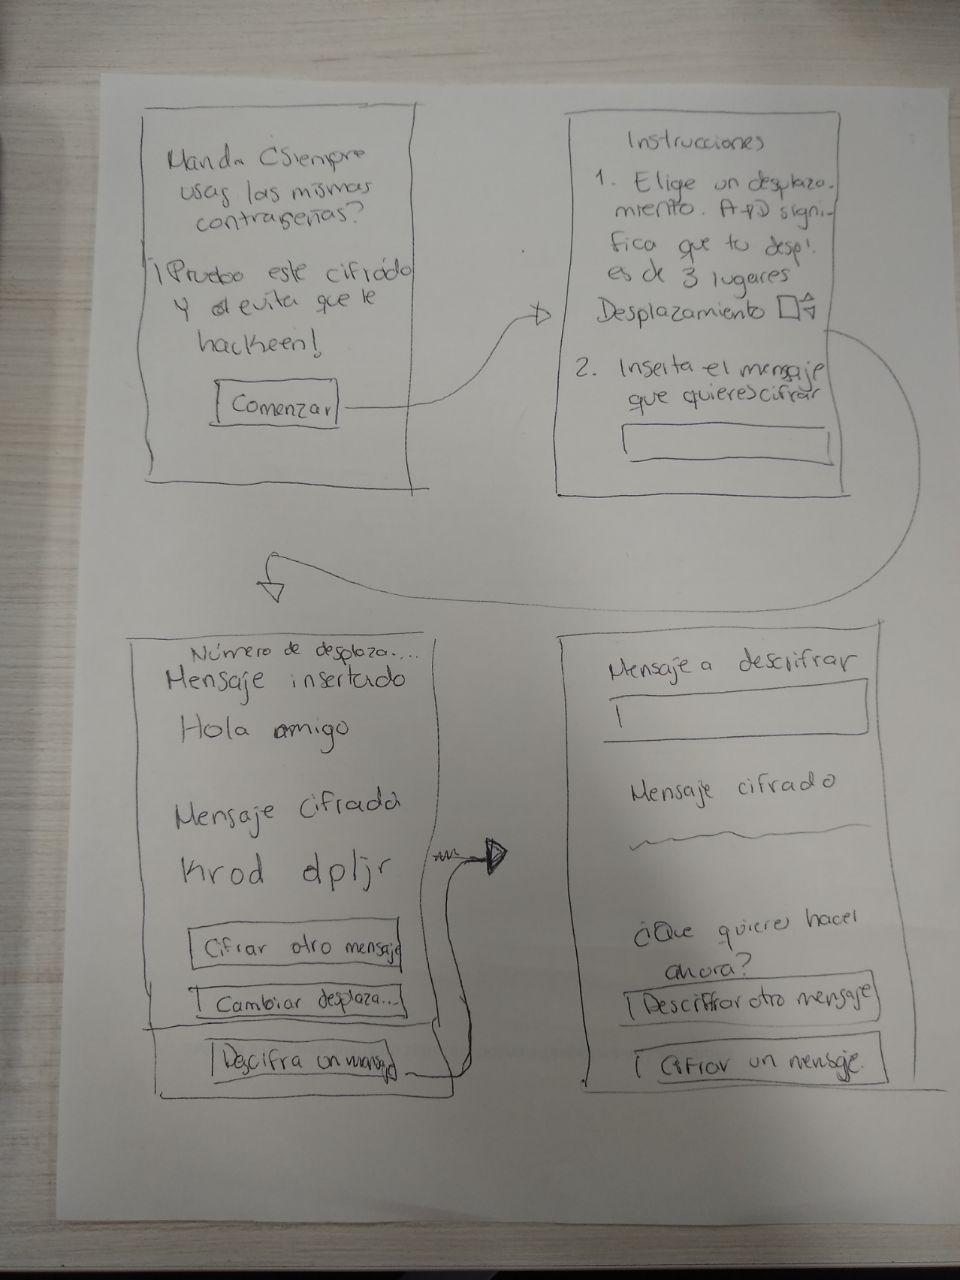 Manda ¿Siempre
usas las mismas
contraseñas?
¡Prueba este cifrado
y evita que le
hackeen!
Comenzar
Instrucciones
1. Elige un desplaza-
miento. A→D signi-
fica que tu despl.
es de 3 lugares
Desplazamiento
2. Inserta el mensaje
que quieres cifrar
Número de desplaza....
Mensaje insertado
Hola amigo
Mensaje cifrado
Krod dpljr
Cifrar otro mensaje
Cambiar desplaza...
Descifra un mensaj
Mensaje a descrifrar
Mensaje cifrado
¿Que quieres hacer
ahora?
Desciffrar otro mensaje
Cifrar un mensaje